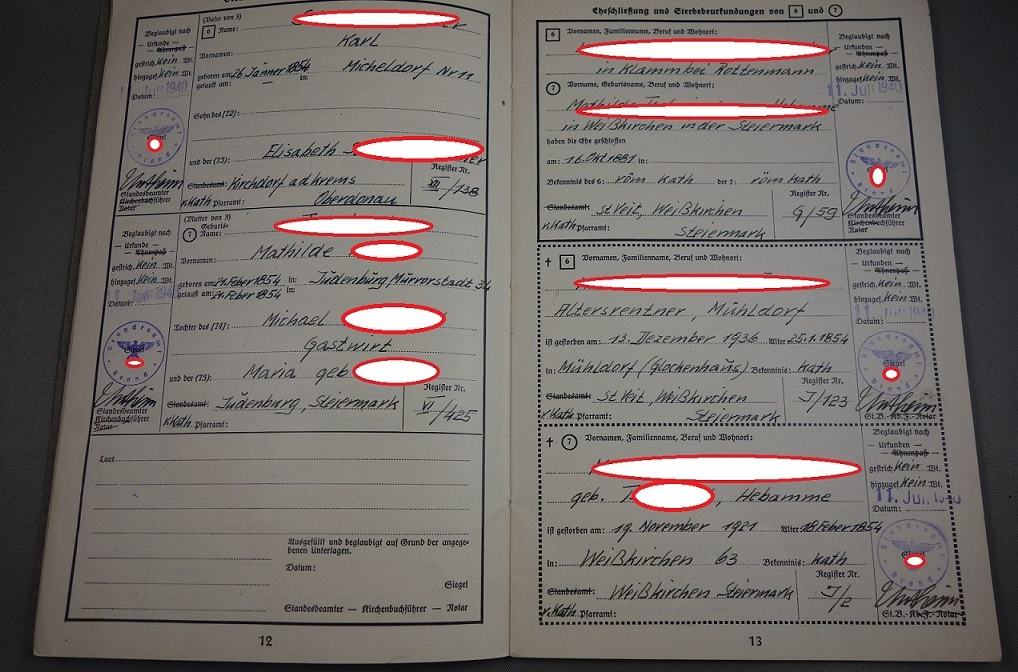 (Vater von 3)
6 Name:
Vornamen: Karl
geboren am: 26 Jänner 1854 in: Micheldorf Nr 11
getauft am:
Sohn des (12):
und der (13): Elisabeth
Standesamt: Kirchdorf a d Krems
Register Nr.
VII/138
r. Kath. Pfarramt: Oberdonau
Beglaubigt nach
Urkunde
Ahnenpaß
gestrich. Kein Wt.
hinzugef. Kein Wt.
Datum: 11. Juli 1940
Standesamt
Siegel
Standesbeamter
Kirchenbuchführer
Notar
(Mutter von 3)
Geburts-
7 Name:
Vornamen: Mathilde
geboren am: in: Judenburg,
getauft am: in:
Tochter des (14): Michael
Gastwirt
und der (15): Maria geb.
Register Nr.
Standesamt: Judenburg, Steiermark
VI/425
r. Kath. Pfarramt:
Beglaubigt nach
Urkunde
Ahnenpaß
gestrich. Kein Wt.
hinzugef. Kein Wt.
Datum:
Standesamt
Siegel
Standesbeamter
Kirchenbuchführer
Notar
Laut
Ausgefüllt und beglaubigt auf Grund der angege-
benen Unterlagen.
Datum:
Siegel
Standesbeamter – Kirchenbuchführer – Notar
12
Eheschließung und Sterbebeurkundungen von 6 und 7
6 Vornamen, Familienname, Beruf und Wohnort:
in Klamm bei Rottenmann
7 Vorname, Geburtsname, Beruf und Wohnort:
Mathilde Hebamme
in Weißkirchen in der Steiermark
haben die Ehe geschlossen
am: 16. Okt 1881 in:
Bekenntnis des 6: röm kath der 7: röm kath
Register Nr.
Standesamt: St Veit, Weißkirchen
9/59
r. Kath. Pfarramt: Steiermark
Beglaubigt nach
Urkunden
Ahnenpaß
gestrich. Kein Wt.
hinzugef. Kein Wt.
11. Juli 1940
Datum:
Standesamt
Standesbeamter
Kirchenbuchführer
Notar
† 6 Vornamen, Familienname, Beruf und Wohnort:
Altersrentner, Mühldorf
ist gestorben am: 13. Dezember 1936 Alter 25.1.1854
in: Mühldorf Bekenntnis: Kath
Register Nr.
Standesamt: St Veit, Weißkirchen
J/123
r. Kath. Pfarramt: Steiermark
Beglaubigt nach
Urkunden
Ahnenpaß
gestrich. Kein Wt.
hinzugef. Kein Wt.
11. Juli 1940
Datum:
Standesamt
Siegel
St.B. – Kb. F. – Notar
† 7 Vornamen, Familienname, Beruf und Wohnort:
geb. T , Hebamme
ist gestorben am: 19. November 1921 Alter 18 Feber 1854
in: Weißkirchen 63 Bekenntnis: Kath
Register Nr.
Standesamt: Weißkirchen Steiermark
J/2
r. Kath. Pfarramt:
Beglaubigt nach
Urkunden
Ahnenpaß
gestrich. Kein Wt.
hinzugef. Kein Wt.
11. Juli 1940
Datum:
Standesamt
St.B. – Kb. F. – Notar
13